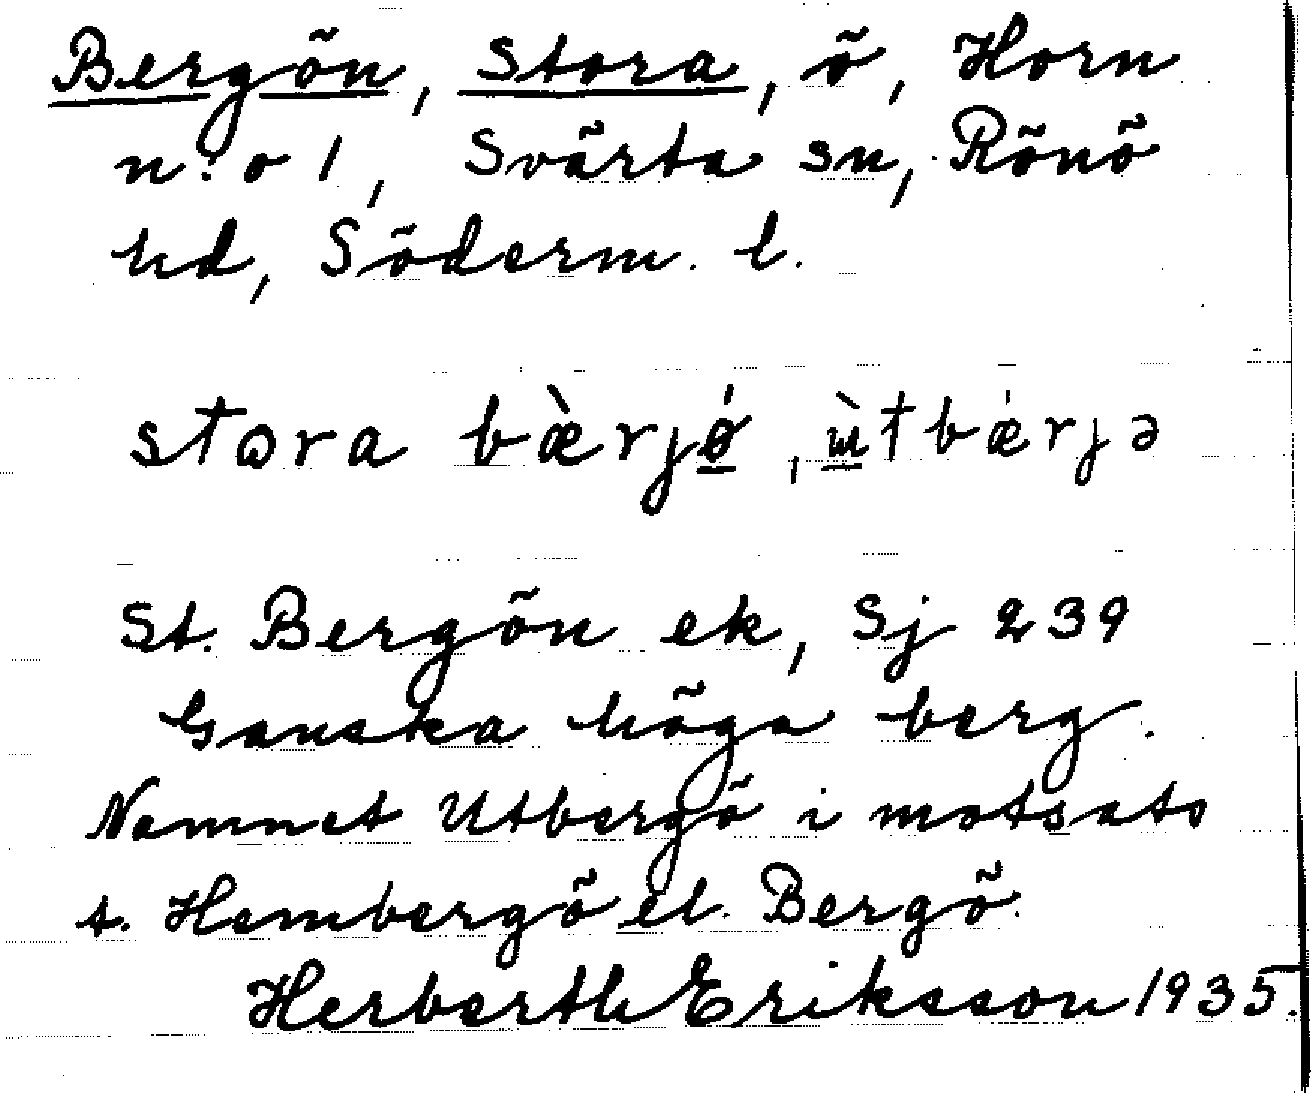 Bergön, Stora, ö, Horn
n:o 1, Svärta sn, Rönö
hd, Söderm. l.
stora bæ̀rjǿ, ɯ̀tbǽrjə
St. Bergön ek, Sj 239
Ganska höga berg.
Namnet Utbergö i motsats
t. Hembergö el. Bergö.
Herberth Eriksson 1935.